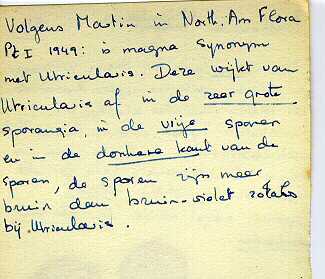 Volgens Martin in North. Am Flora
Pt I 1949: is magna synonym
met Utricularis. Deze wijkt van
Utricularis af in de zeer grote
sporangia, in de vrije sporen
en in de donkere kant van de
sporen, de sporen zijn meer
bruin dan bruin-violet zoals
bij Utricularis.